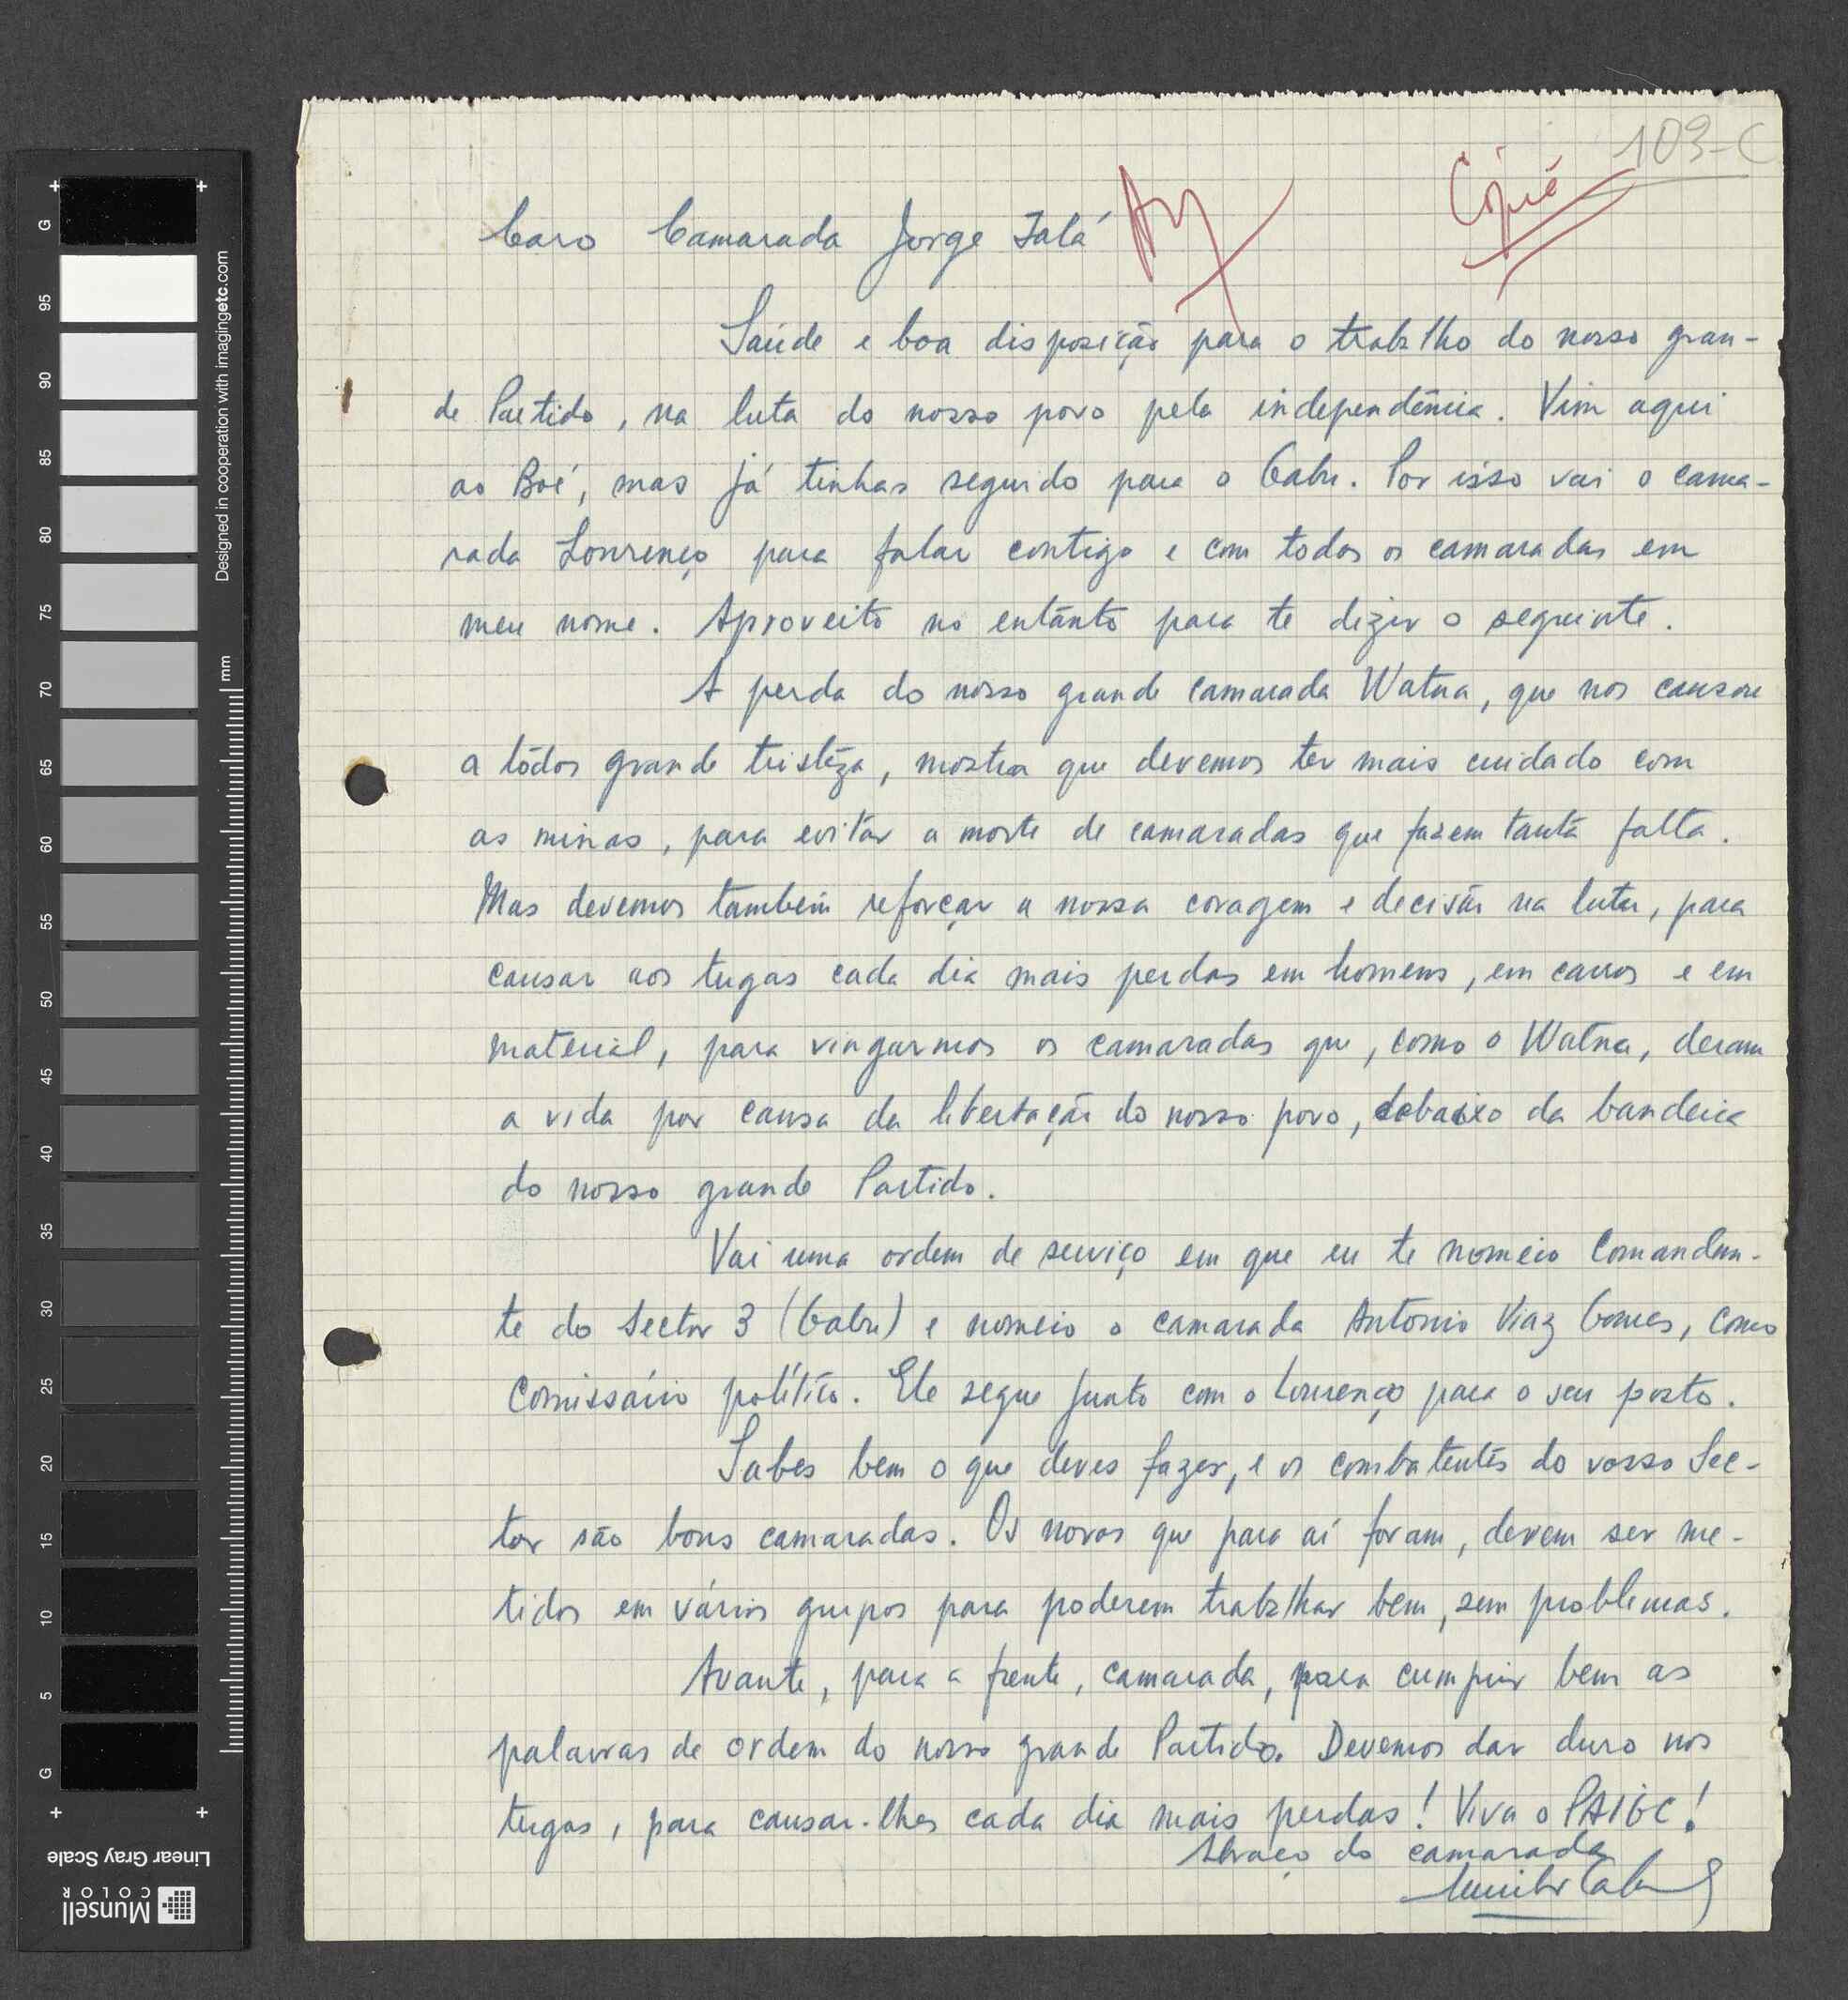 103-C
Copié
Caro Camarada Jorge Talá
Saúde e boa disposição para o trabalho do nosso gran-
de Partido, na luta do nosso povo pela independência. Vim aqui
ao Boé, mas já tinhas seguido para o Gabu. Por isso vai o cama-
rada Lourenço para falar contigo e com todos os camaradas em
meu nome. Aproveito no entânto para te dizer o seguinte.
A perda do nosso grande camarada Watna, que nos causou
a tôdos grande tristêza, mostra que devemos ter mais cuidado com
as minas, para evitar a morte de camaradas que fazem tanta falta.
Mas devemos também reforçar a nossa coragem e decisão na luta, para
causar aos tugas cada dia mais perdas em homens, em carros e em
material, para vingarmos os camaradas que, como o Watna, deram
a vida por causa da libertação do nosso povo, debaixo da bandeira
do nosso grande Partido.
Vai uma ordem de serviço em que eu te nomeio Comandan-
te do Sector 3 (Gabu) e nomeio o camarada Antonio Viaz Gomes, como
Comissário político. Ele segue junto com o Lourenço para o seu posto.
Sabes bem o que deves fazer, e os combatentes do vosso Sec-
tor são bons camaradas. Os novos que para aí foram, devem ser me-
tidos em vários grupos para poderem trabalhar bem, sem problemas.
Avante, para a frente, camarada, para cumprir bem as
palavras de ordem do nosso grande Partido. Devemos dar duro nos
tugas, para causar-lhes cada dia mais perdas! Viva o PAIGC!
Abraço do camarada
Amilcar Cabral
G 95 90 85 80 75 70 65 60 55 50 45 40 35 30 25 20 15 10 5 G
Designed in cooperation with imagingetc.com
mm
Linear Gray Scale
Munsell
COLOR